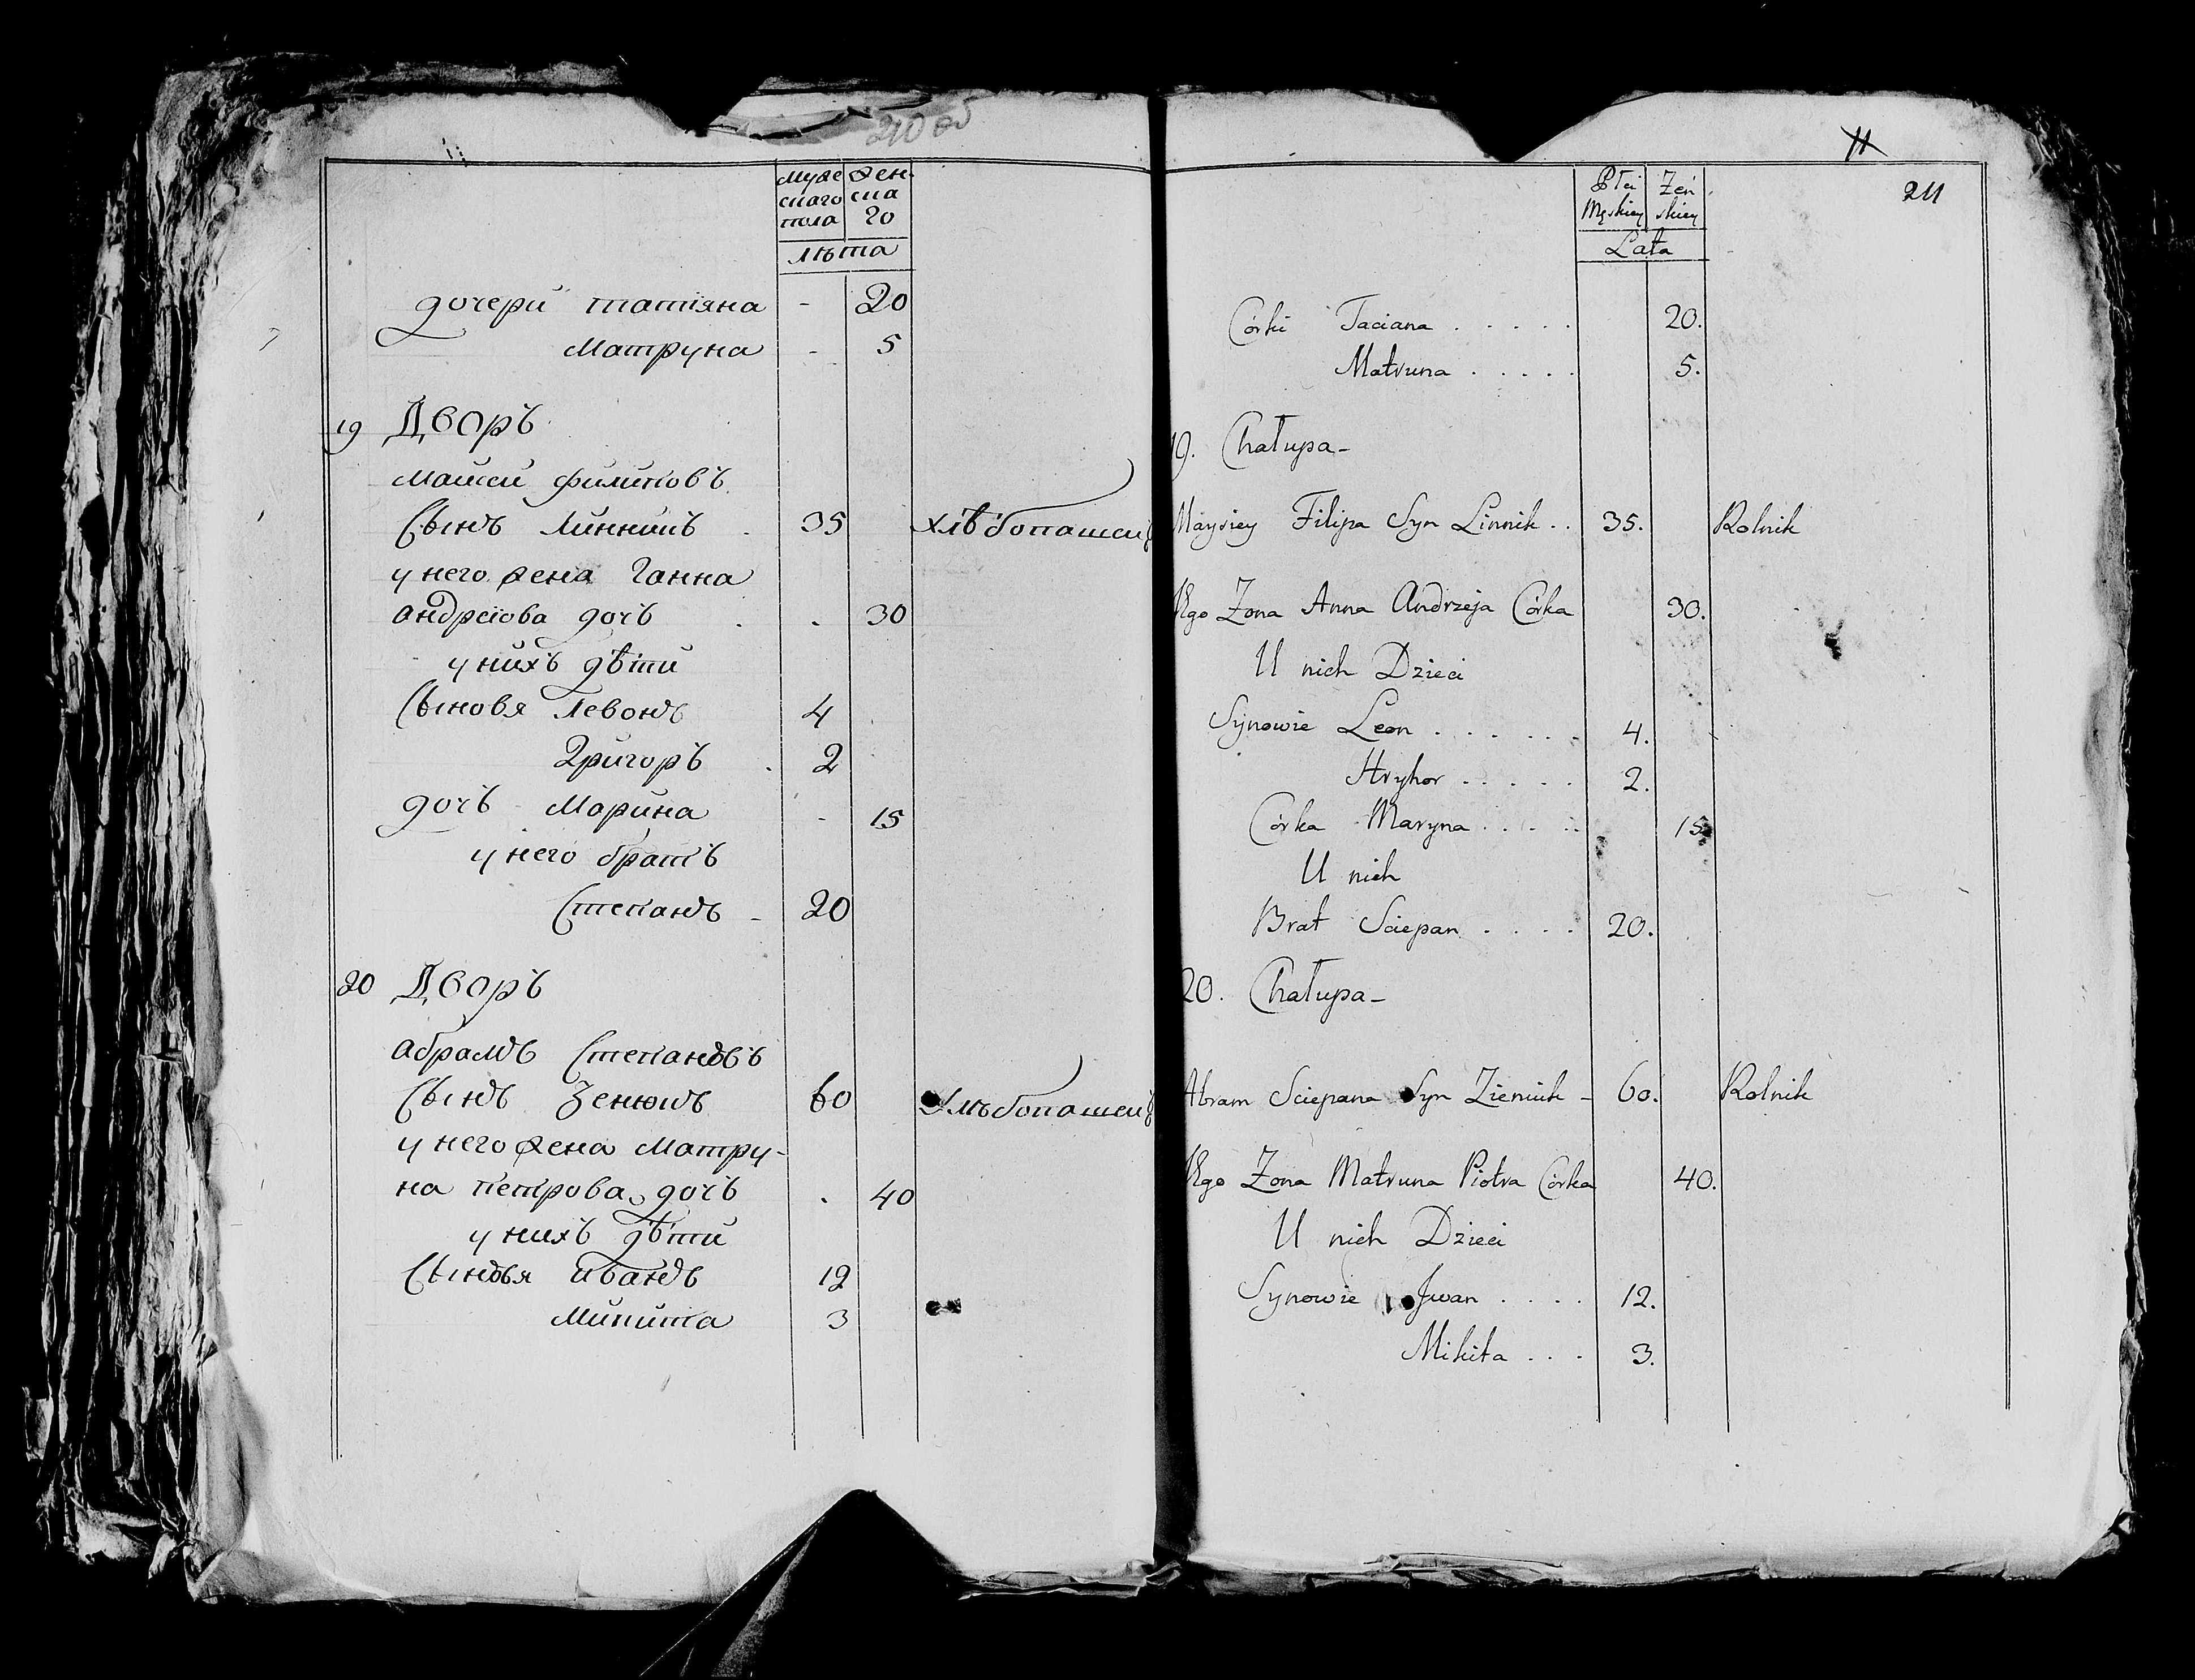 210 об
Муже
скаго
пола
Жен
ска
го
Лѣта
дочери татіяна - 20
Матруна - 5
19 Дворъ
Моисей филиповъ
Сынъ Линникъ 35 хлѣбопашецъ
у него жена Ганна
андреіова дочь 30
у нихъ дѣти
Сыновя Левонъ 4
Григоръ 2
дочь Марина - 15
у него братъ
Степанъ - 20
20 Дворъ
абрамъ Степановъ
Сынъ Зенюкъ 60 Хлѣбопашецъ
у него жена Матру-
на петрова дочь 40
у нихъ дѣти
Сыновя иванъ 12
Микита 3
11
211
Płci
Męskiey
Żeń
skiey
Lata
Córki Taciana . . . . . 20.
Matruna . . . . . 5.
19. Chałupa -
Maysiey Filipa Syn Linnik . . 35. Rolnik
Jego Żona Anna Andrzeja Córka 30.
U nich Dzieci
Synowie Leon . . . . . . 4.
Hryhor . . . . . 2.
Córka Maryna . . . . . 15
U nich
Brat Sciepan . . . . 20.
20. Chałupa -
Abram Sciepana Syn Zieniuk - 60. Rolnik
Jego Żona Matruna Piotra Córka 40.
U nich Dzieci
Synowie Jwan . . . . 12.
Mikita . . . 3.